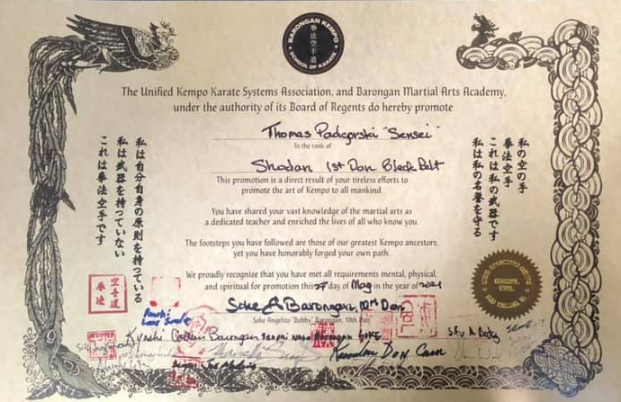 BARONGAN KEMPO
拳法空手道
SCHOOL OF KARATE
The Unified Kempo Karate Systems Association, and Barongan Martial Arts Academy,
under the authority of its Board of Regents do hereby promote
Thomas Padgorski "Sensei"
To the rank of
Shodan 1st Dan Black Belt
This promotion is a direct result of your tireless efforts to
promote the art of Kempo to all mankind.
You have shared your vast knowledge of the martial arts as
a dedicated teacher and enriched the lives of all who know you.
The footsteps you have followed are those of our greatest Kempo ancestors,
yet you have honorably forged your own path.
We proudly recognize that you have met all requirements mental, physical,
and spiritual for promotion this day of May in the year of 2021
Soke A Barongan, 10th Dan
Soke Angelito "Bobby" Barongan, 10th Dan
私は自分自身の原則を持っている
私は武器を持っていない
これは拳法空手です
私の空の手
拳法空手
これは私の武器です
私は私の名誉を守る
空手道
拳法
Kyoshi Barongan
Don